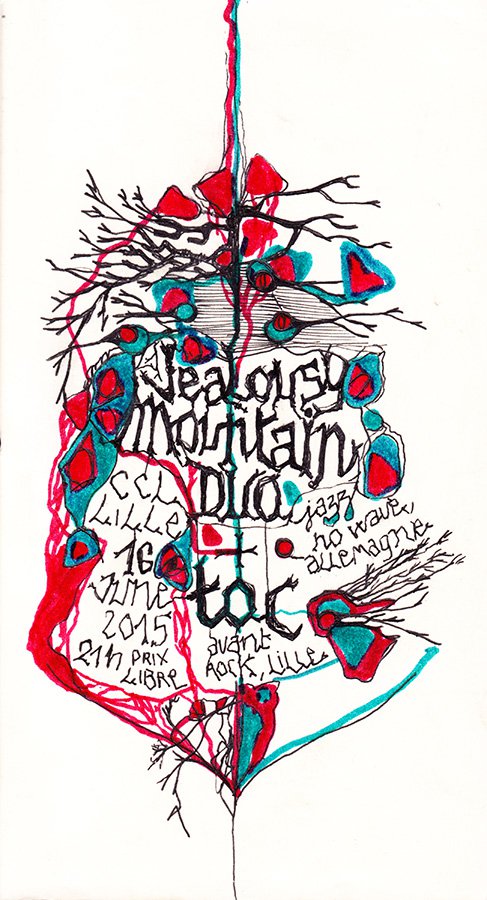 Jealousy
Mountain
Duo
jazz
no wave,
allemagne
+
tac
avant
rock, Lille
CCL
Lille
16
June
2015
21h prix
libre